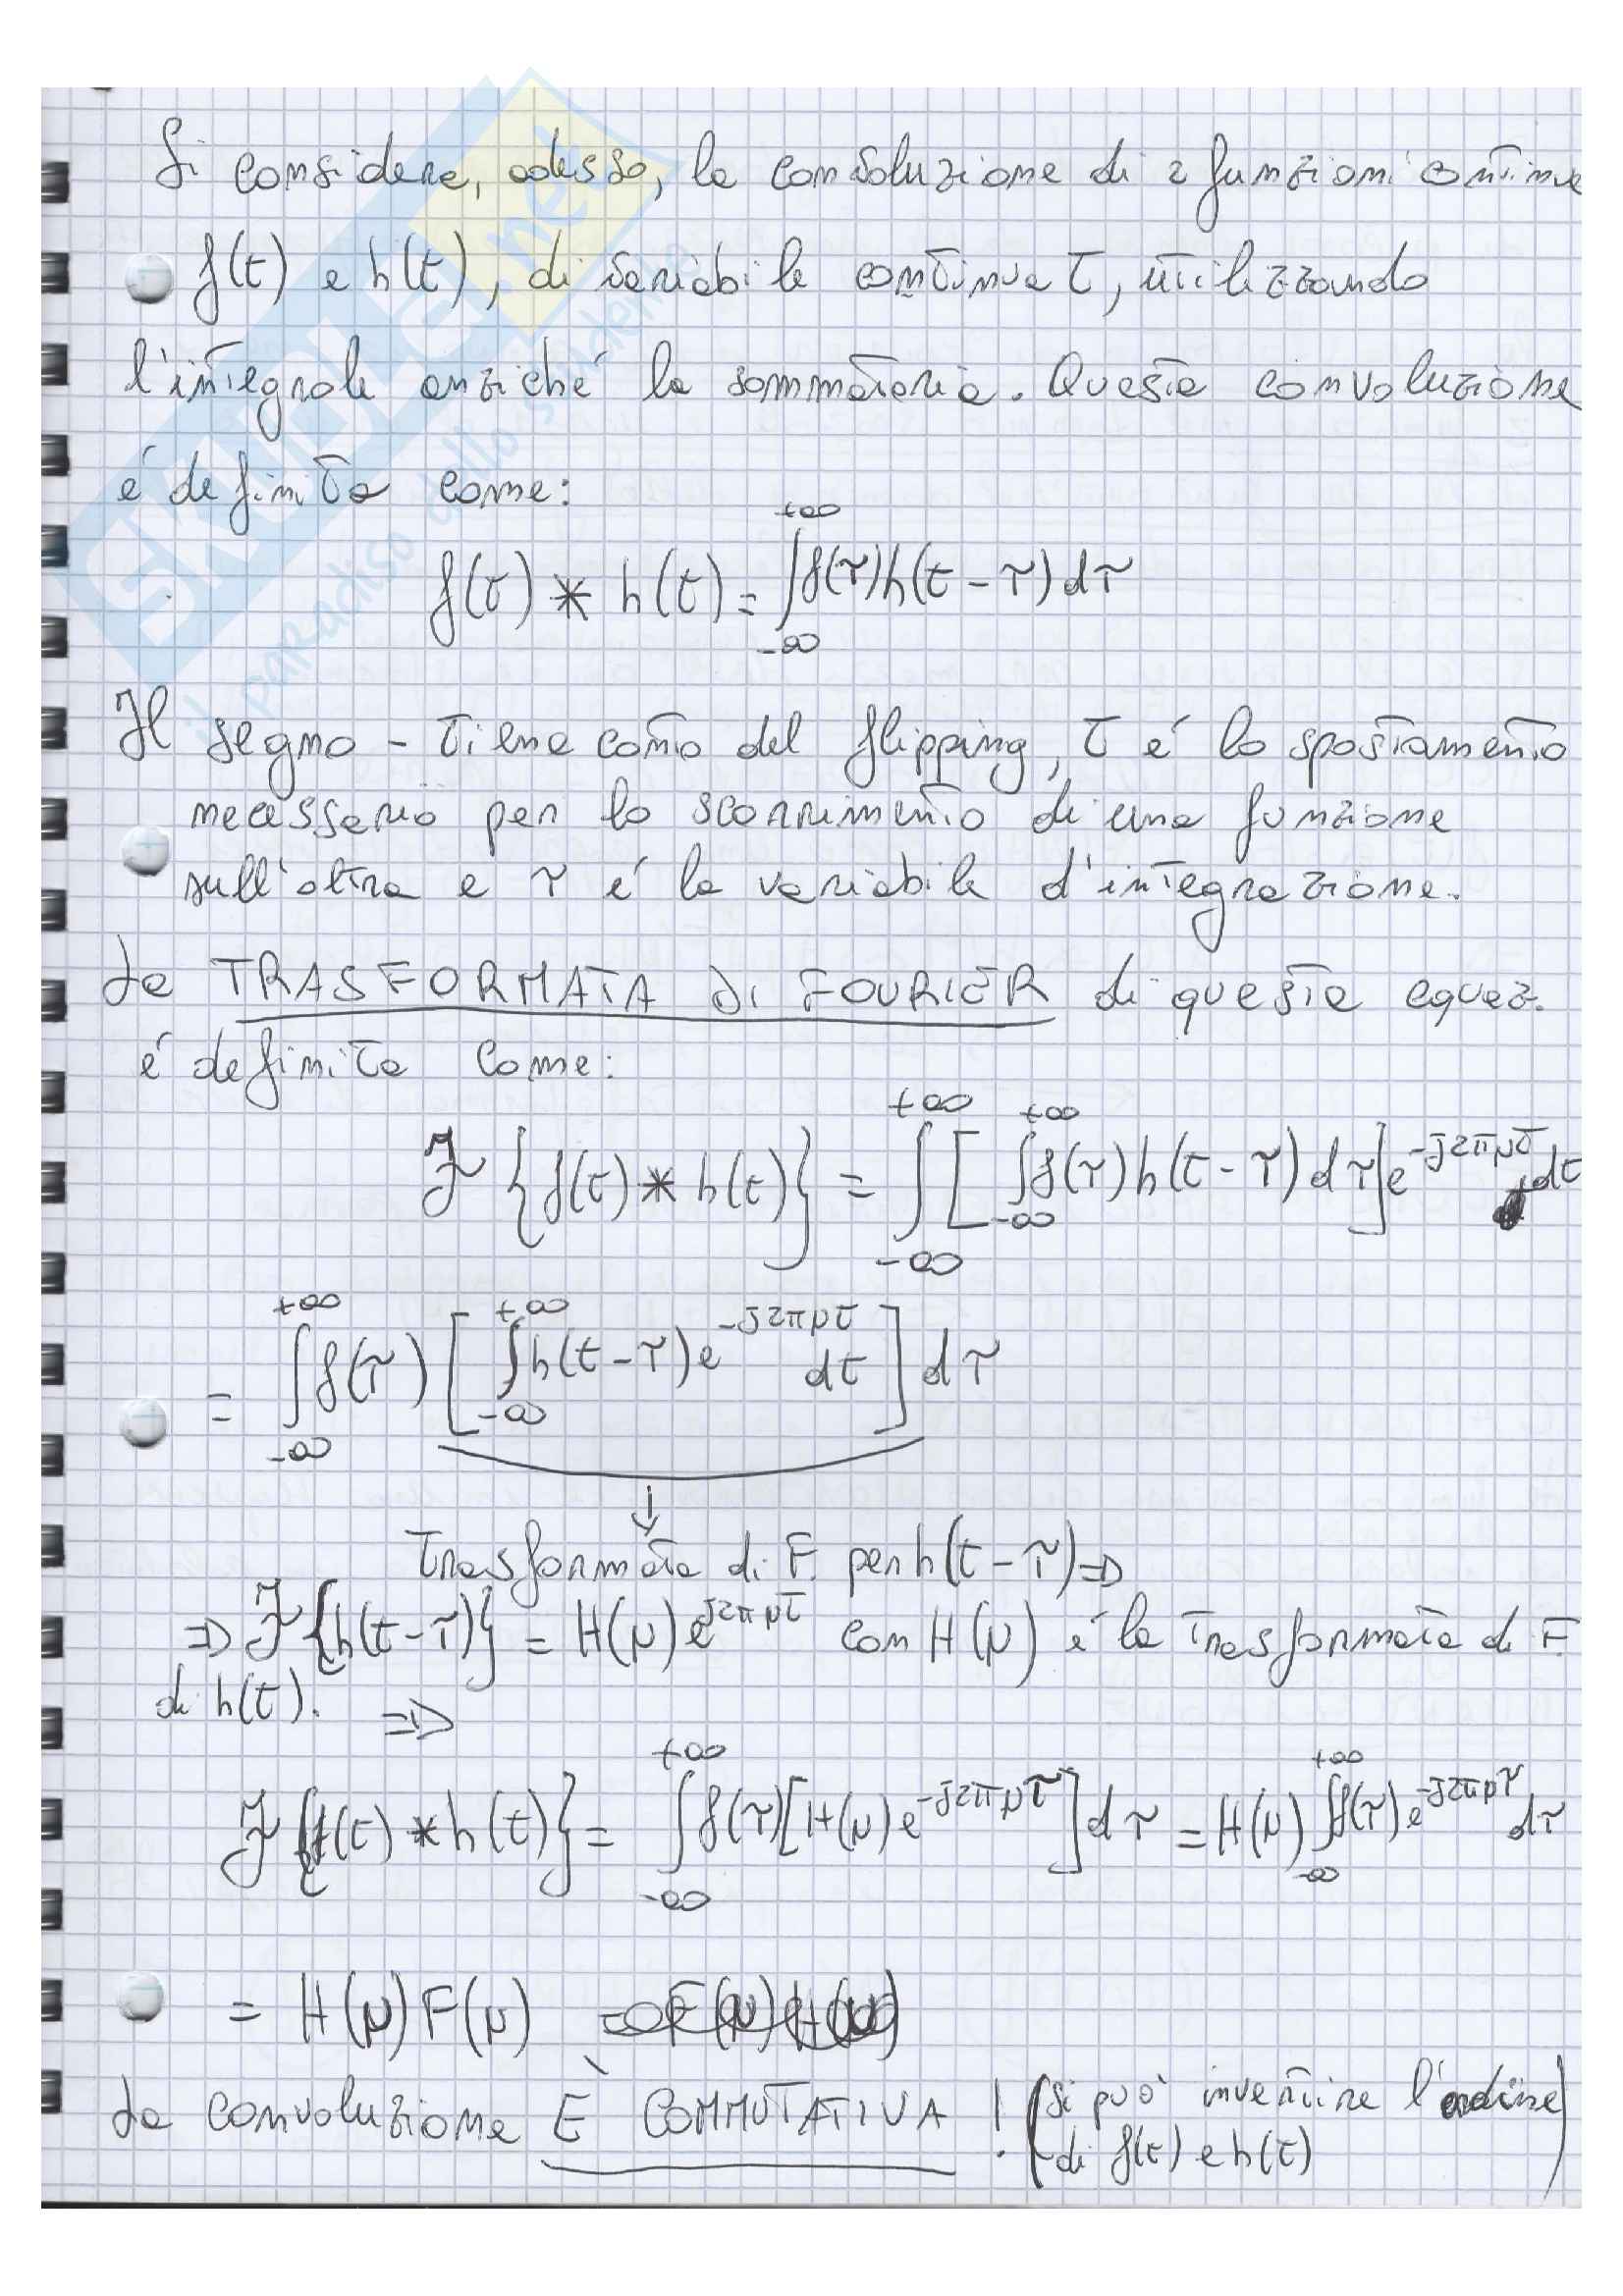 Si considera, adesso, la convoluzione di 2 funzioni continue
f(t) e h(t), di variabile continua t, utilizzando
l'integrale anziché la sommatoria. Questa convoluzione
é definita come:
f(t) * h(t) = ∫_{-∞}^{+∞} f(τ)h(t-τ)dτ
Il segno - tiene conto del flipping, t é lo spostamento
necessario per lo scorrimento di una funzione
sull'altra e τ é la variabile d'integrazione.
La TRASFORMATA DI FOURIER di questa equaz.
é definita come:
𝓕{f(t) * h(t)} = ∫_{-∞}^{+∞} [∫_{-∞}^{+∞} f(τ)h(t-τ)dτ] e^{-j2πμt} dt
= ∫_{-∞}^{+∞} f(τ) [∫_{-∞}^{+∞} h(t-τ)e^{-j2πμt} dt] dτ
↓
Trasformata di F. per h(t-τ) ⇒
⇒ 𝓕{h(t-τ)} = H(μ)e^{j2πμt} con H(μ) é la trasformata di F.
di h(t). ⇒
𝓕{f(t) * h(t)} = ∫_{-∞}^{+∞} f(τ)[H(μ)e^{-j2πμτ}]dτ = H(μ) ∫_{-∞}^{+∞} f(τ)e^{-j2πμτ} dτ
= H(μ)F(μ)
La convoluzione È COMMUTATIVA ! (si può invertire l'ordine
di f(t) e h(t))
SKUOLA.net
il paradiso dello studente